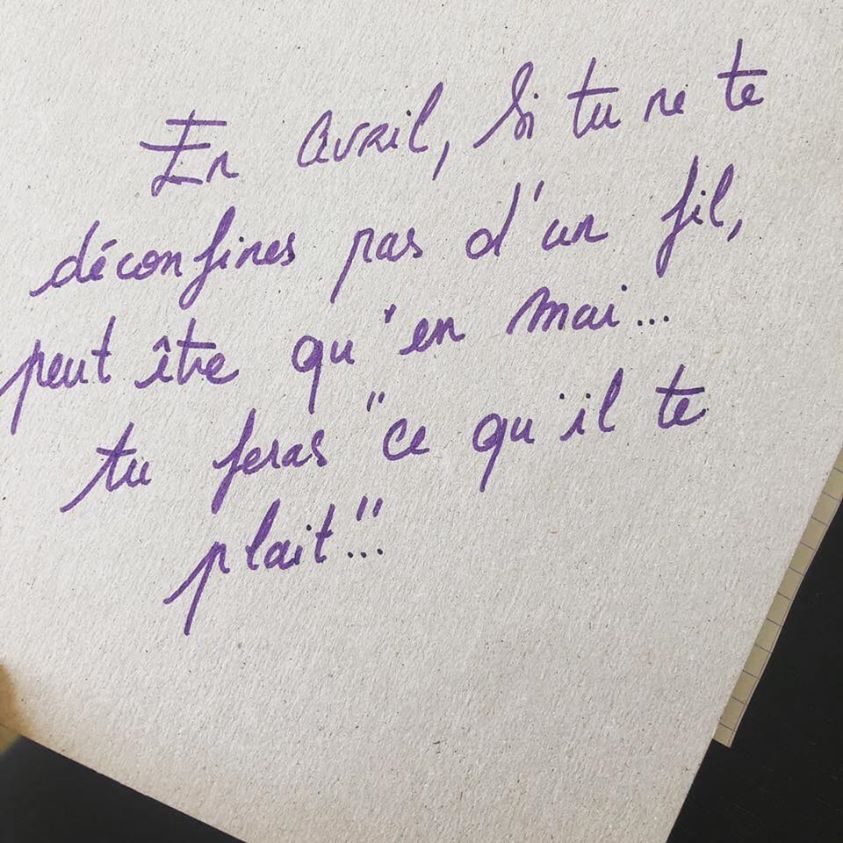 En avril, si tu ne te
déconfines pas d'un fil,
peut être qu'en mai...
tu feras "ce qu'il te
plait"...